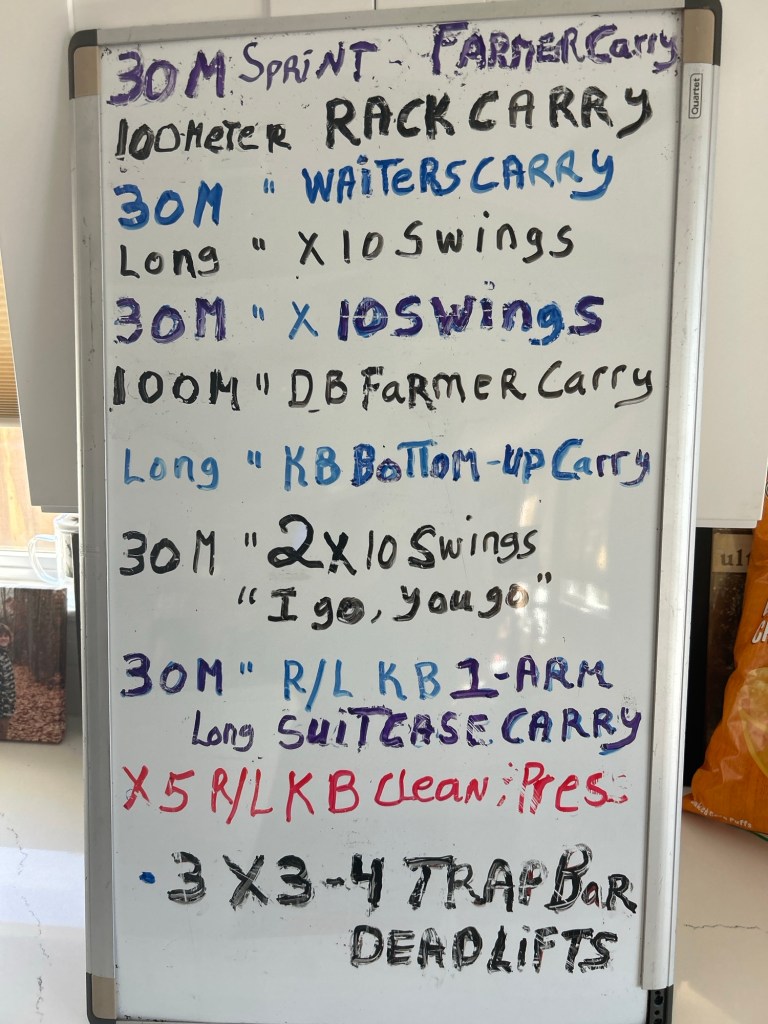 30M SPRINT - FARMER Carry
Quartet
100METER RACK CARRY
30M " WAiTERS CARRY
Long " X 10 Swings
30M " X 10 Swings
100M " DB FaRMER Carry
Long " KB BoTTOM-UP Carry
30M " 2X10 Swings
"I go, you go"
ult
30M " R/L KB 1-ARM
Long SUiTCASE CARRY
X5 R/L KB Clean ; Press
• 3 X 3-4 TRAP BaR
DEADLiFTS